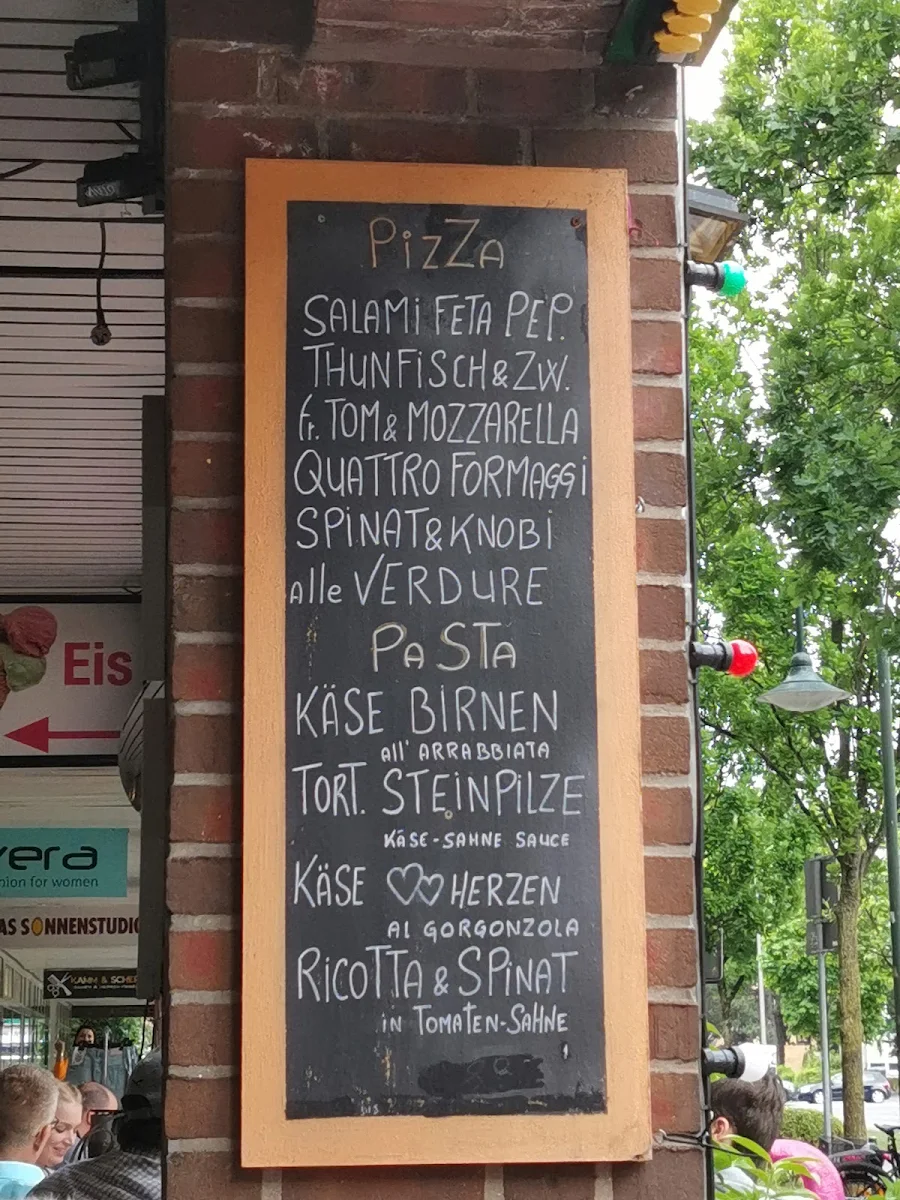 PiZZA
SALAMi FETA PEP.
THUNFiSCH & ZW.
fr. TOM & MOZZARELLA
QUATTRO FORMAGGi
SPiNAT & KNOBi
alle VERDURE
PASTA
KÄSE BIRNEN
all' ARRABBIATA
TORT. STEiNPILZE
KÄSE-SAHNE SAUCE
KÄSE HERZEN
Al GORGONZOLA
RICOTTA & SPiNAT
iN TOMATEN-SAHNE
Eis
vera
for women
SONNENSTUDIO
KAMM &